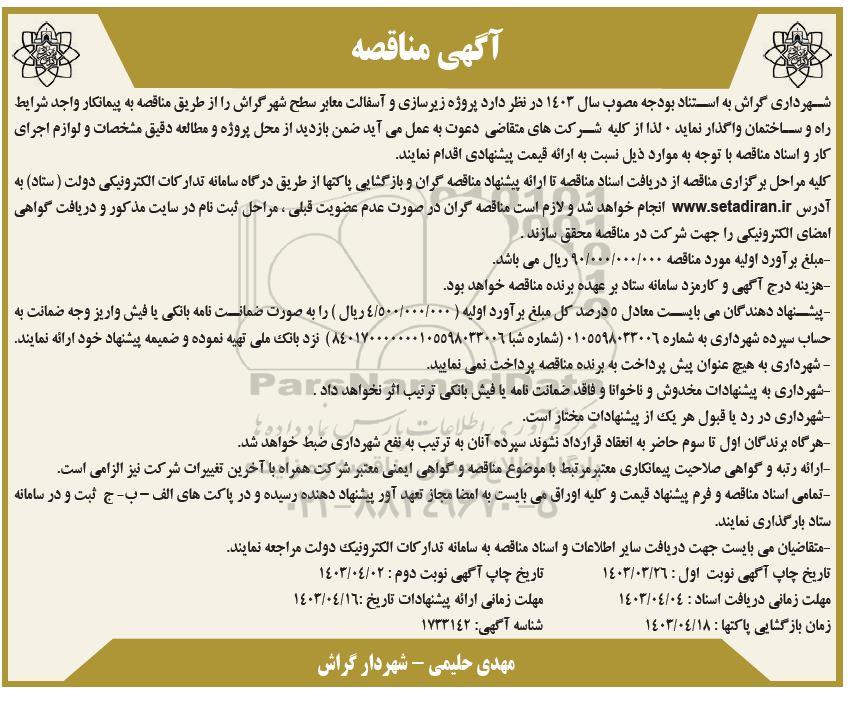 آگهی مناقصه
شهرداری گراش به استناد بودجه مصوب سال ۱۴۰۳ در نظر دارد پروژه زیرسازی و آسفالت معابر سطح شهر گراش را از طریق مناقصه به پیمانکار واجد شرایط
راه و ساختمان واگذار نماید ۰ لذا از کلیه شرکت های متقاضی دعوت به عمل می آید ضمن بازدید از محل پروژه و مطالعه دقیق مشخصات و لوازم اجرای
کار و اسناد مناقصه با توجه به موارد ذیل نسبت به ارائه قیمت پیشنهادی اقدام نمایند.
کلیه مراحل برگزاری مناقصه از دریافت اسناد مناقصه تا ارائه پیشنهاد مناقصه گران و بازگشایی پاکتها از طریق درگاه سامانه تدارکات الکترونیکی دولت ( ستاد) به
آدرس www.setadiran.ir انجام خواهد شد و لازم است مناقصه گران در صورت عدم عضویت قبلی ، مراحل ثبت نام در سایت مذکور و دریافت گواهی
امضای الکترونیکی را جهت شرکت در مناقصه محقق سازند .
-مبلغ برآورد اولیه مورد مناقصه ۹۰/۰۰۰/۰۰۰/۰۰۰ ریال می باشد.
-هزینه درج آگهی و کارمزد سامانه ستاد بر عهده برنده مناقصه خواهد بود.
-پیشنهاد دهندگان می بایست معادل ۵ درصد کل مبلغ برآورد اولیه ( ۴/۵۰۰/۰۰۰/۰۰۰ ریال ) را به صورت ضمانت نامه بانکی یا فیش واریز وجه ضمانت به
حساب سپرده شهرداری به شماره ۰۱۰۵۵۹۸۰۳۳۰۰۶ (شماره شبا ۸۴۰۱۷۰۰۰۰۰۰۰۱۰۵۵۹۸۰۳۳۰۰۶) نزد بانک ملی تهیه نموده و ضمیمه پیشنهاد خود ارائه نمایند.
- شهرداری به هیچ عنوان پیش پرداخت به برنده مناقصه پرداخت نمی نمایید.
-شهرداری به پیشنهادات مخدوش و ناخوانا و فاقد ضمانت نامه یا فیش بانکی ترتیب اثر نخواهد داد .
-شهرداری در رد یا قبول هر یک از پیشنهادات مختاز است.
-هرگاه برندگان اول تا سوم حاضر به انعقاد قرارداد نشوند سپرده آنان به ترتیب به نفع شهرداری ضبط خواهد شد.
-ارائه رتبه و گواهی صلاحیت پیمانکاری معتبرمرتبط با موضوع مناقصه و گواهی ایمنی معتبر شرکت همراه با آخرین تغییرات شرکت نیز الزامی است.
-تمامی اسناد مناقصه و فرم پیشنهاد قیمت و کلیه اوراق می بایست به امضا مجاز تعهد آور پیشنهاد دهنده رسیده و در پاکت های الف – ب- ج ثبت و در سامانه
ستاد بارگذاری نمایند.
-متقاضیان می بایست جهت دریافت سایر اطلاعات و اسناد مناقصه به سامانه تدارکات الکترونیک دولت مراجعه نمایند.
تاریخ چاپ آگهی نوبت اول : ۱۴۰۳/۰۳/۲۶ تاریخ چاپ آگهی نوبت دوم : ۱۴۰۳/۰۴/۰۲
مهلت زمانی دریافت اسناد : ۱۴۰۳/۰۴/۰۴ مهلت زمانی ارائه پیشنهادات تاریخ :۱۴۰۳/۰۴/۱۶
زمان بازگشایی پاکتها : ۱۴۰۳/۰۴/۱۸ شناسه آگهی: ۱۷۳۳۱۴۲
مهدی حلیمی – شهردار گراش
ParsNamadData
۰۲۱-۸۸۳۴۹۶۷۰-۵